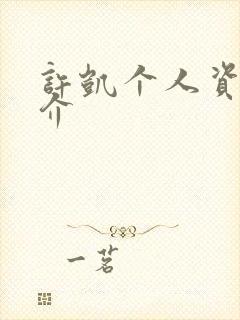 許凱个人資
介
一茗